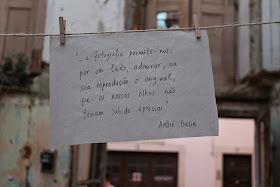 "... a fotografia permite-nos,
por um lado, admirar, na
sua reprodução o original,
que os nossos olhos não
teriam sabido apreciar.
André Bazin